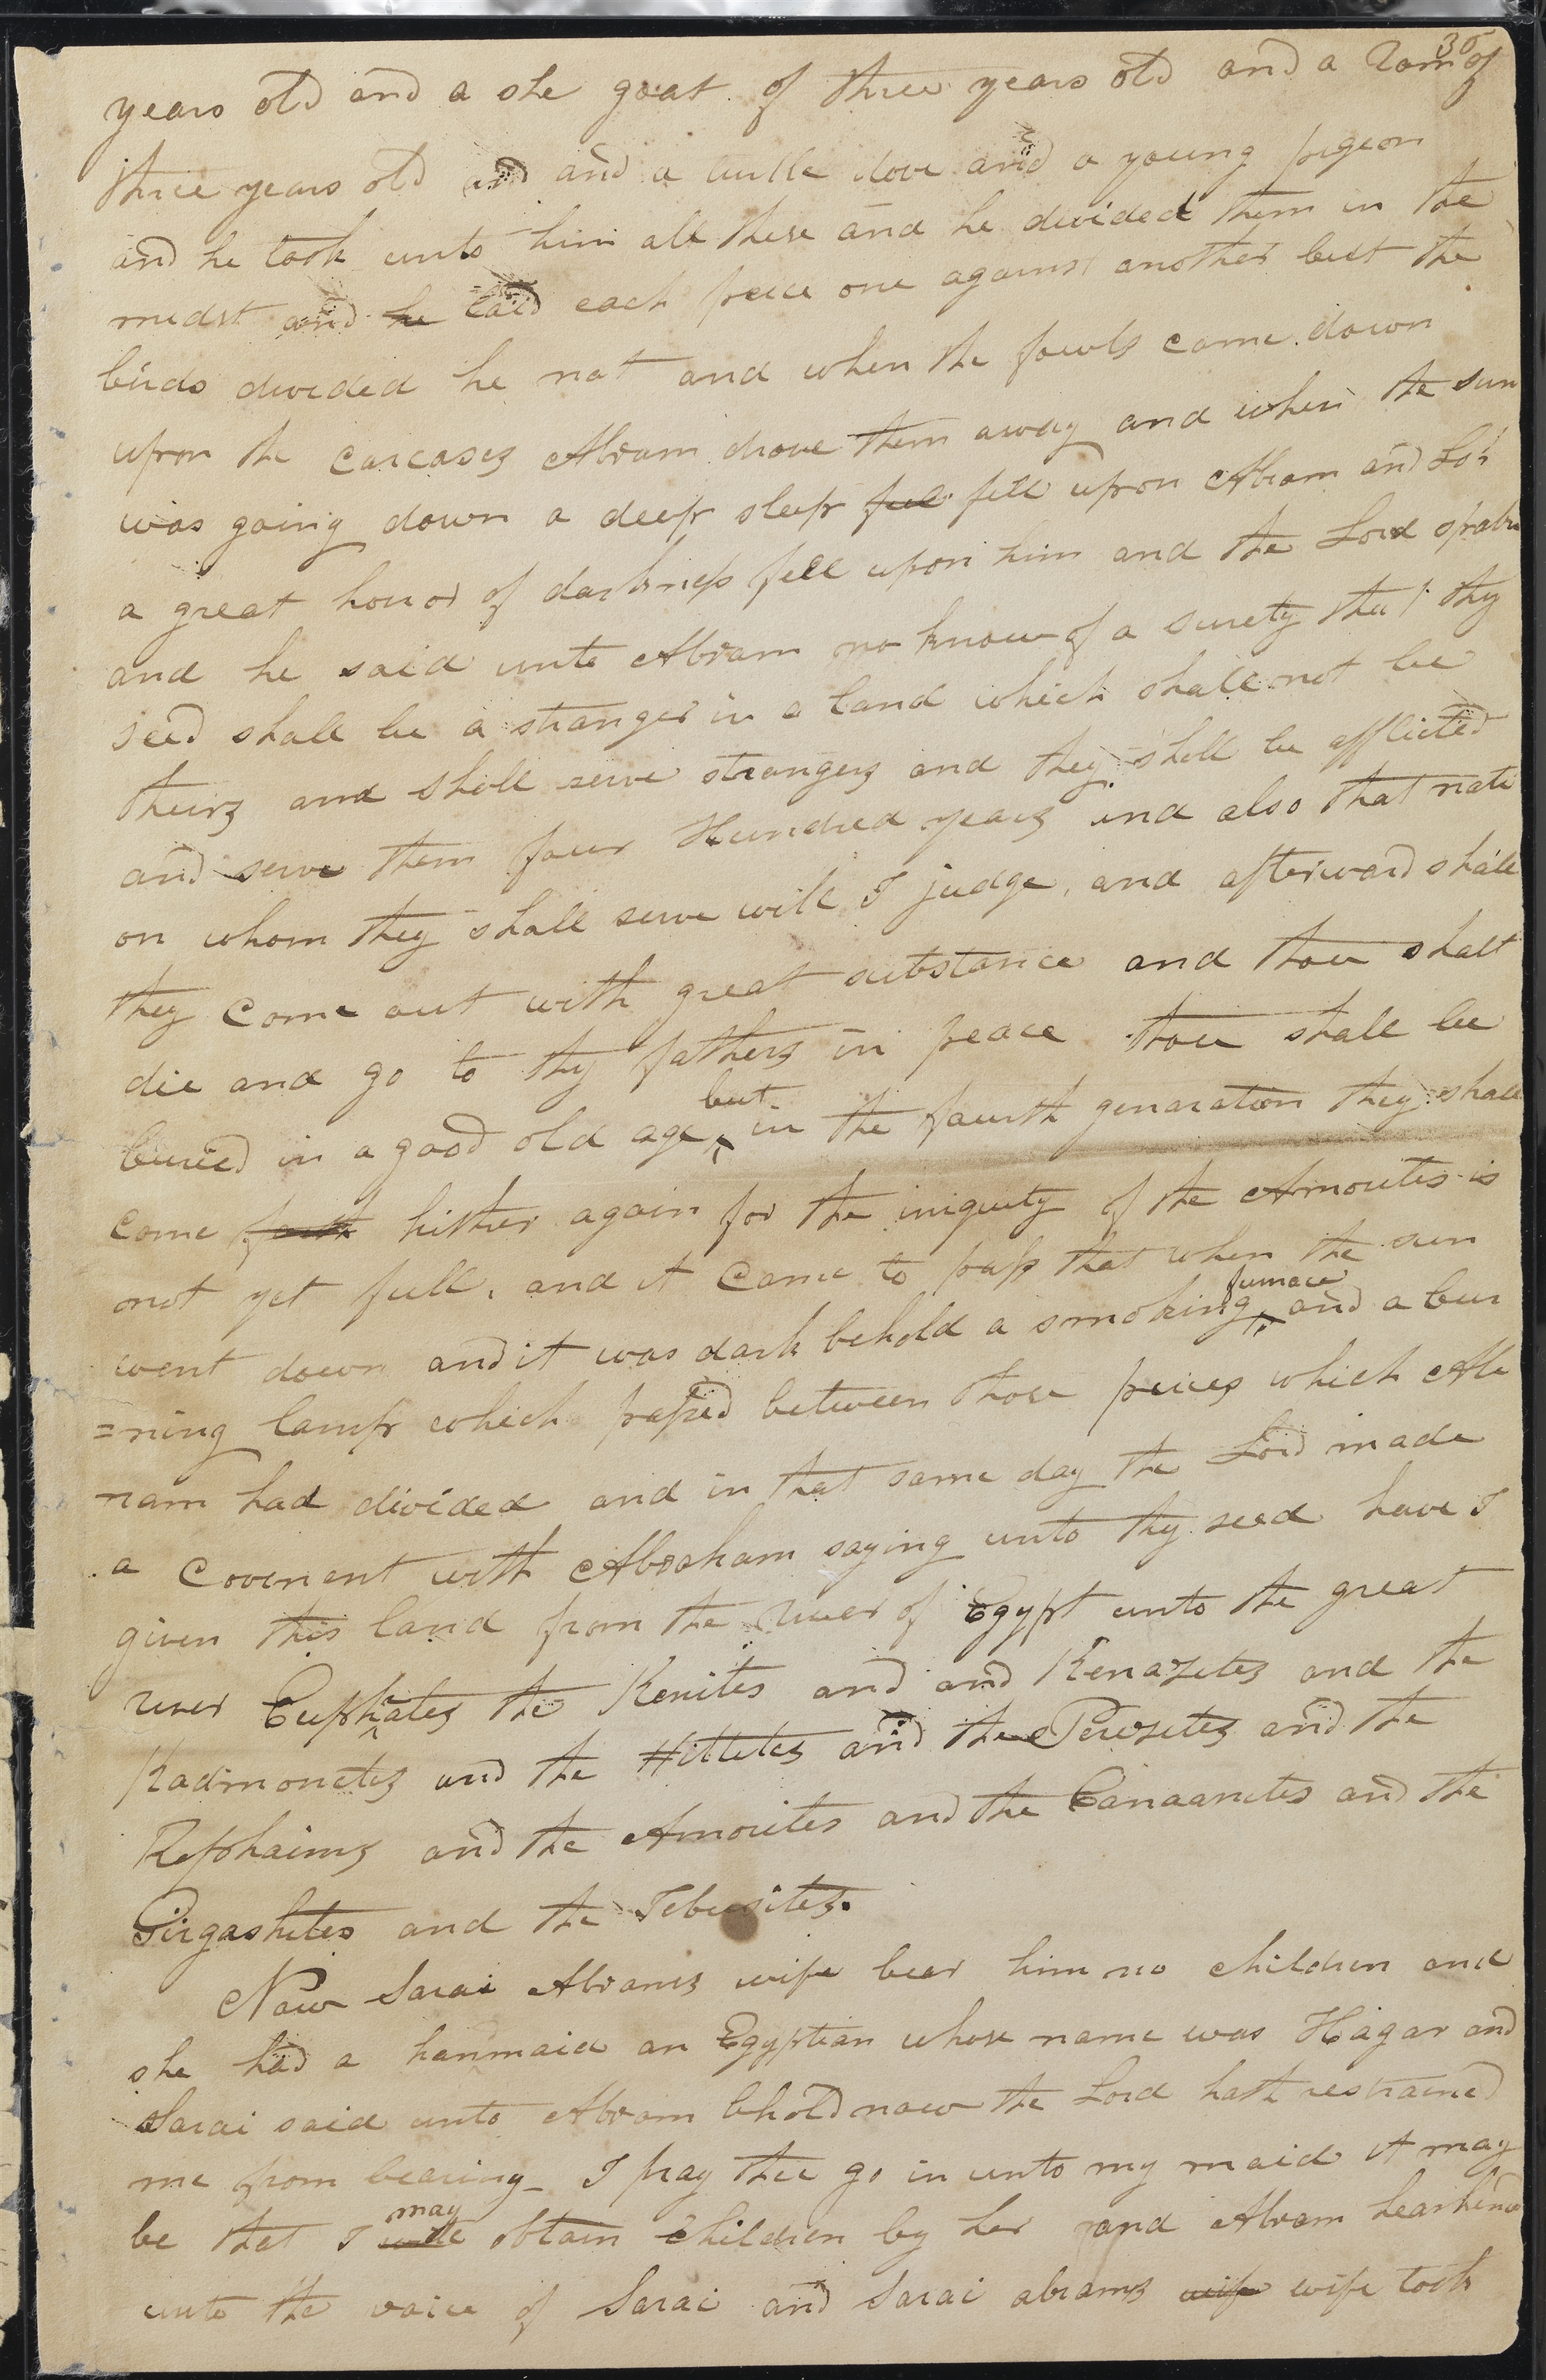 35
years old and a she goat of three years old and a Ram of
three years old and and a turtle dove and a young pigeon
and he took unto him all these and he divided them in the
midst and he laid each peice one against another but the
birds divided he not and when the fowls came down
upon the carcases Abram drove them away and when the sun
was going down a deep sleep fel fell upon Abram and Lo
a great horror of darkness fell upon him and the Lord spake
and he said unto Abram no know of a surety that thy
seed shall be a stranger in a land which shall not be
theirs and shall serve strangers and they shall be afflicted
and serve them four Hundred years and also that nati
on whom they shall serve will I judge, and afterward shall
they come out with great substance and thou shalt
die and go to thy fathers in peace thou shall be
buried in a good old age ‸ but in the fourth genaration they shall
come forth hither again for the iniquity of the Amorites is
not yet full, and it came to pass that when the sun
went down and it was dark behold a smoking ‸ furnace and a bur
=ning lamp which passed between those peices which Ab
ram had divided and in that same day the Lord made
a covenent with Abraham saying unto thy seed have I
given this land from the river of Egypt unto the great
river Euphrates the Kenites and and Kenazites and the
Kadmonites and the Hittites and the Perizites and the
Rephaims and the Amorites and the Canaanites and the
Girgashites and the Jebusites.
Now Sarai Abrams wife bear him no children and
she had a hanmaid an Egyptian whose name was Hagar and
Sarai said unto Abram behold now the Lord hath restrained
me from bearing_ I pray thee go in unto my maid it may
be that I will may obtain children by her and Abram hearkened
unto the voice of Sarai and Sarai abrams wife wife took